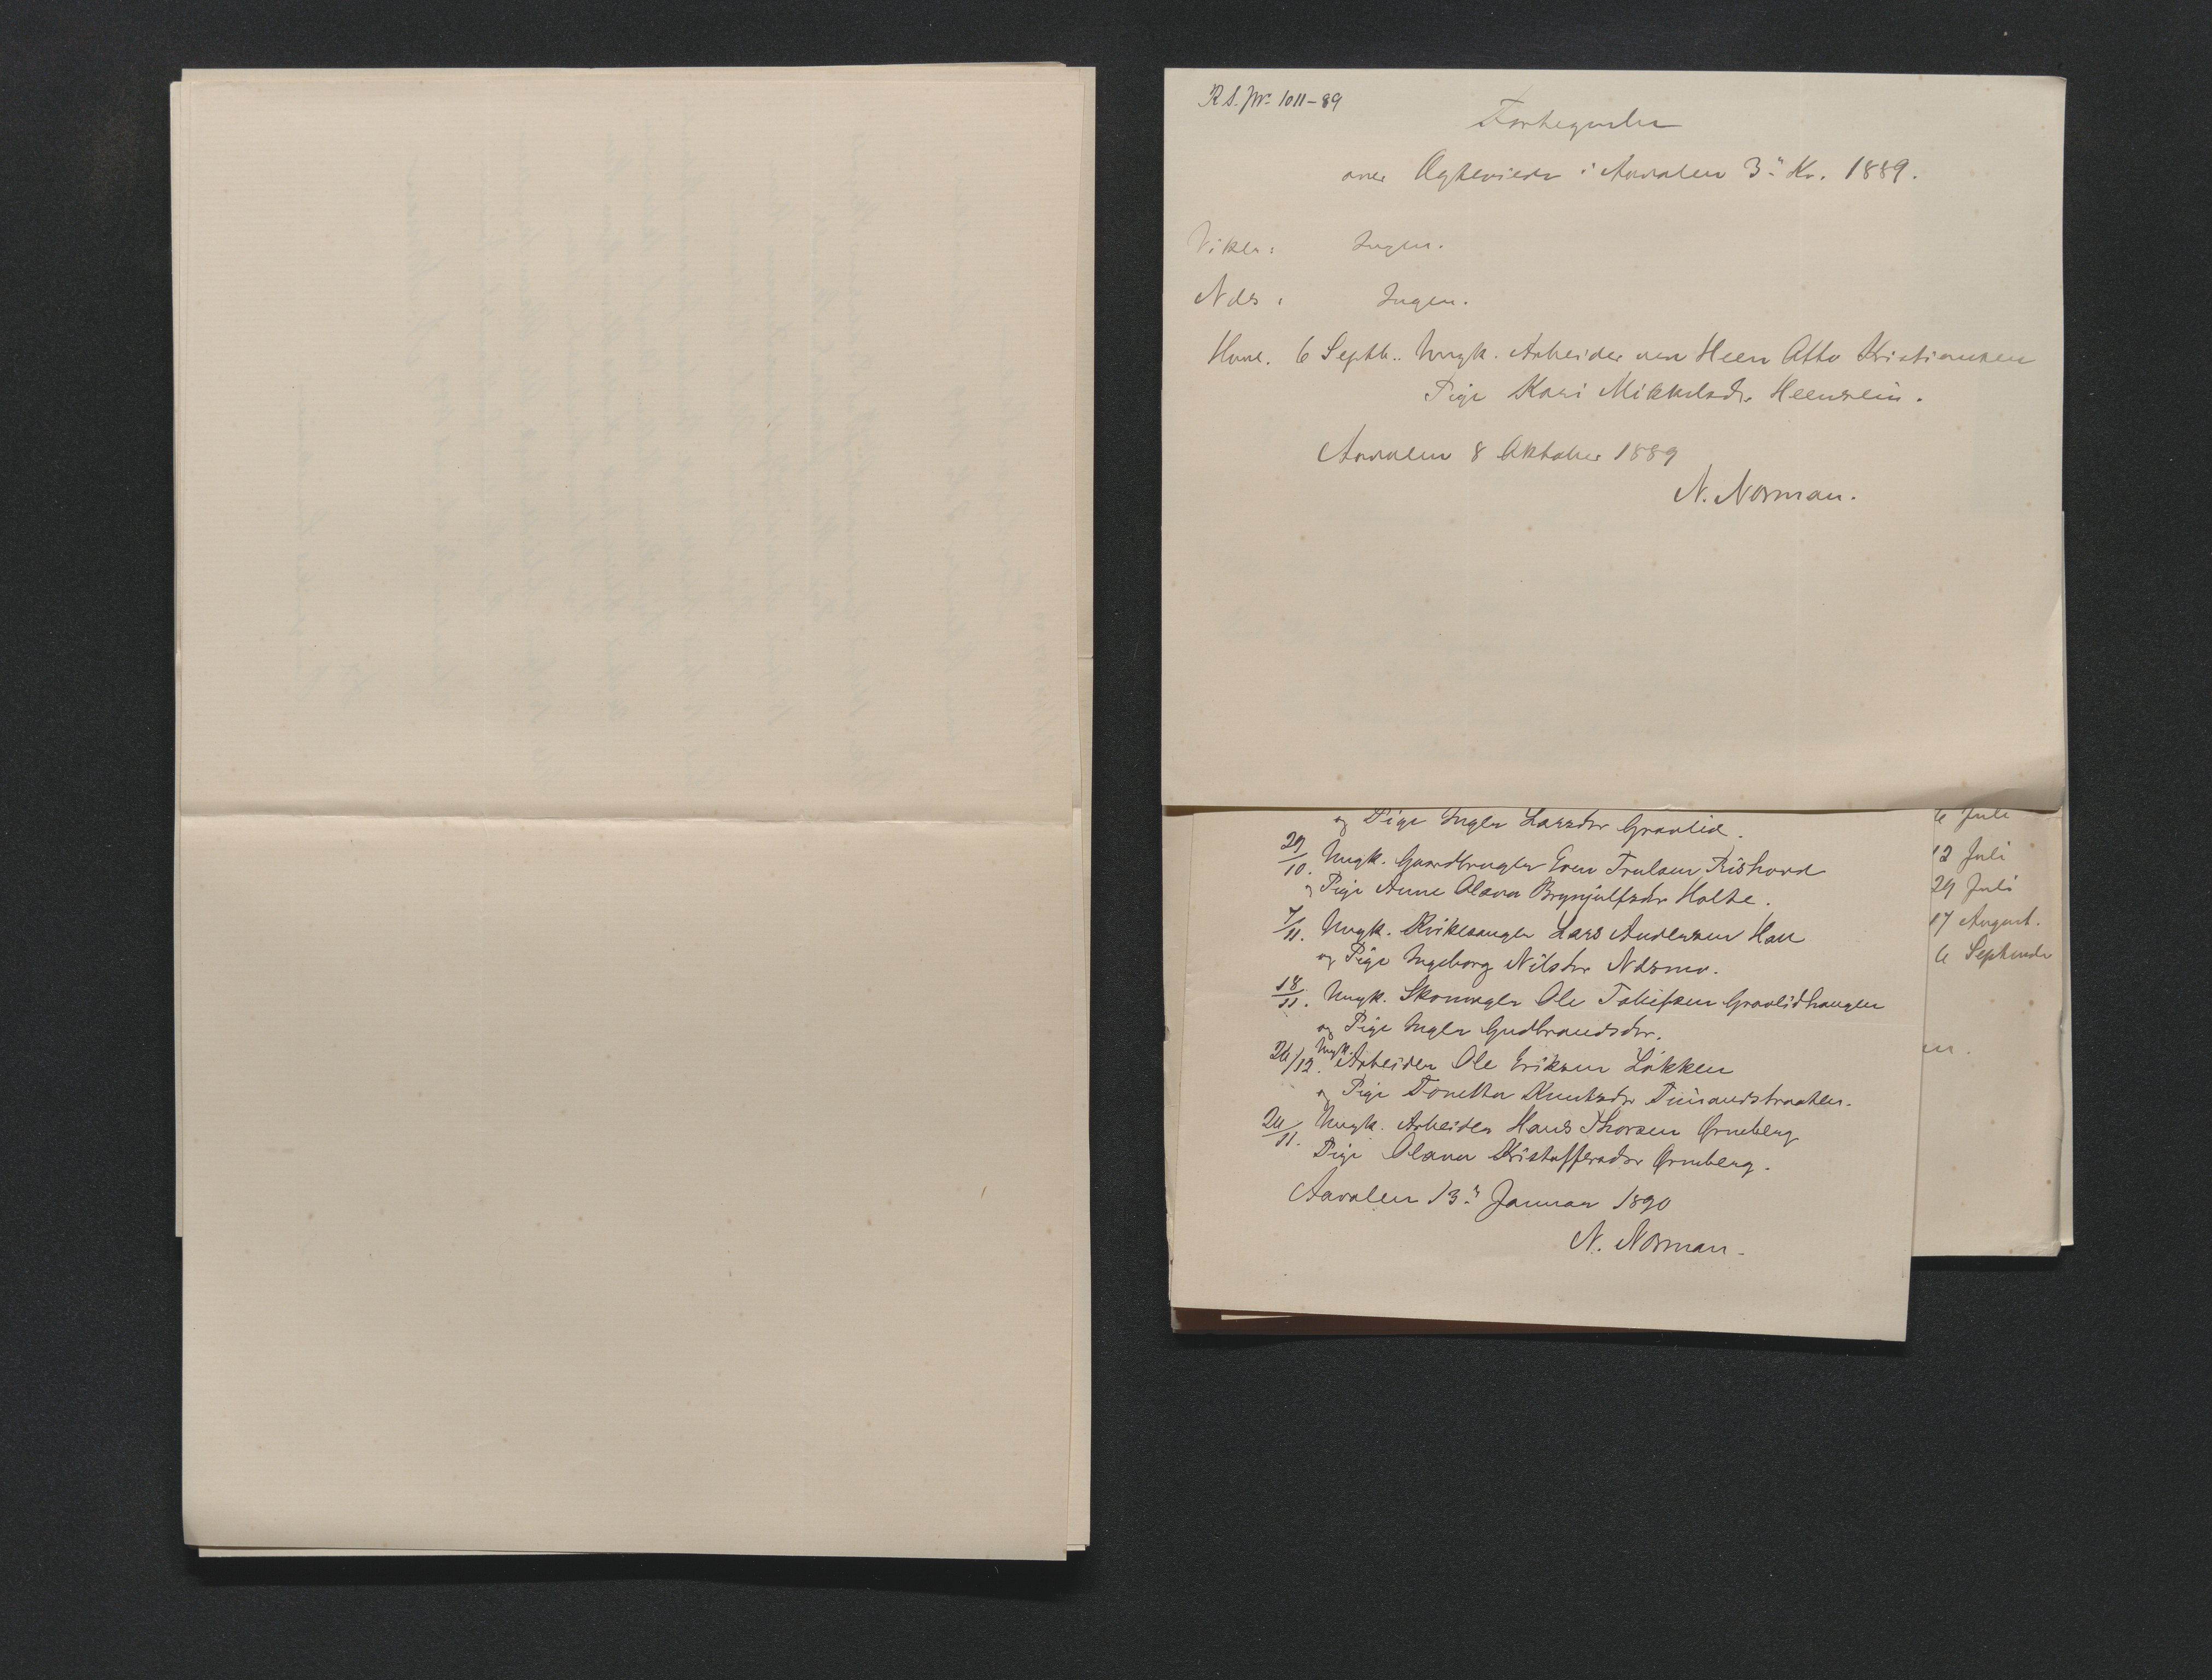 R S. Jvr. 1011-89
Fortegnelse
over Ægteviede i Aadalen 3die Kv. 1889.
Viker: Ingen.
Næs: Ingen.
Hval. 6 Septb.. Ungk. Arbeider ved Heen Otto Kristiansen
Pige Kari Mikkelsdr. Heenseie.
Aadalen 8 Oktober 1889
N. Norman.
og Pige Inger Larsdr Gravlid.
29/10. Ungk. Gaardbruger Even Trulsen Rishovd
og Pige Anne Olava Brynjulfsdr Holte.
7/11. Ungk. Kirkesanger Lars Andersen Hou
og Pige Ingeborg Nilsdr Næsmo.
18/11. Ungk. Skomager Ole Tollefsen Gravlidhaugen
og Pige Inger Gudbrandsdr.
26/12. Ungk. Arbeider Ole Eriksen Løkken
og Pige Tonetta Knutsdr
24/11. Ungk. Arbeider Hans Thorsen Ørneberg
Pige Olava Kristoffersdr Ørneberg.
Aadalen 13de Januar 1890
N. Norman.
6 Juli
12 Juli
29 Juli
17 August.
6 September